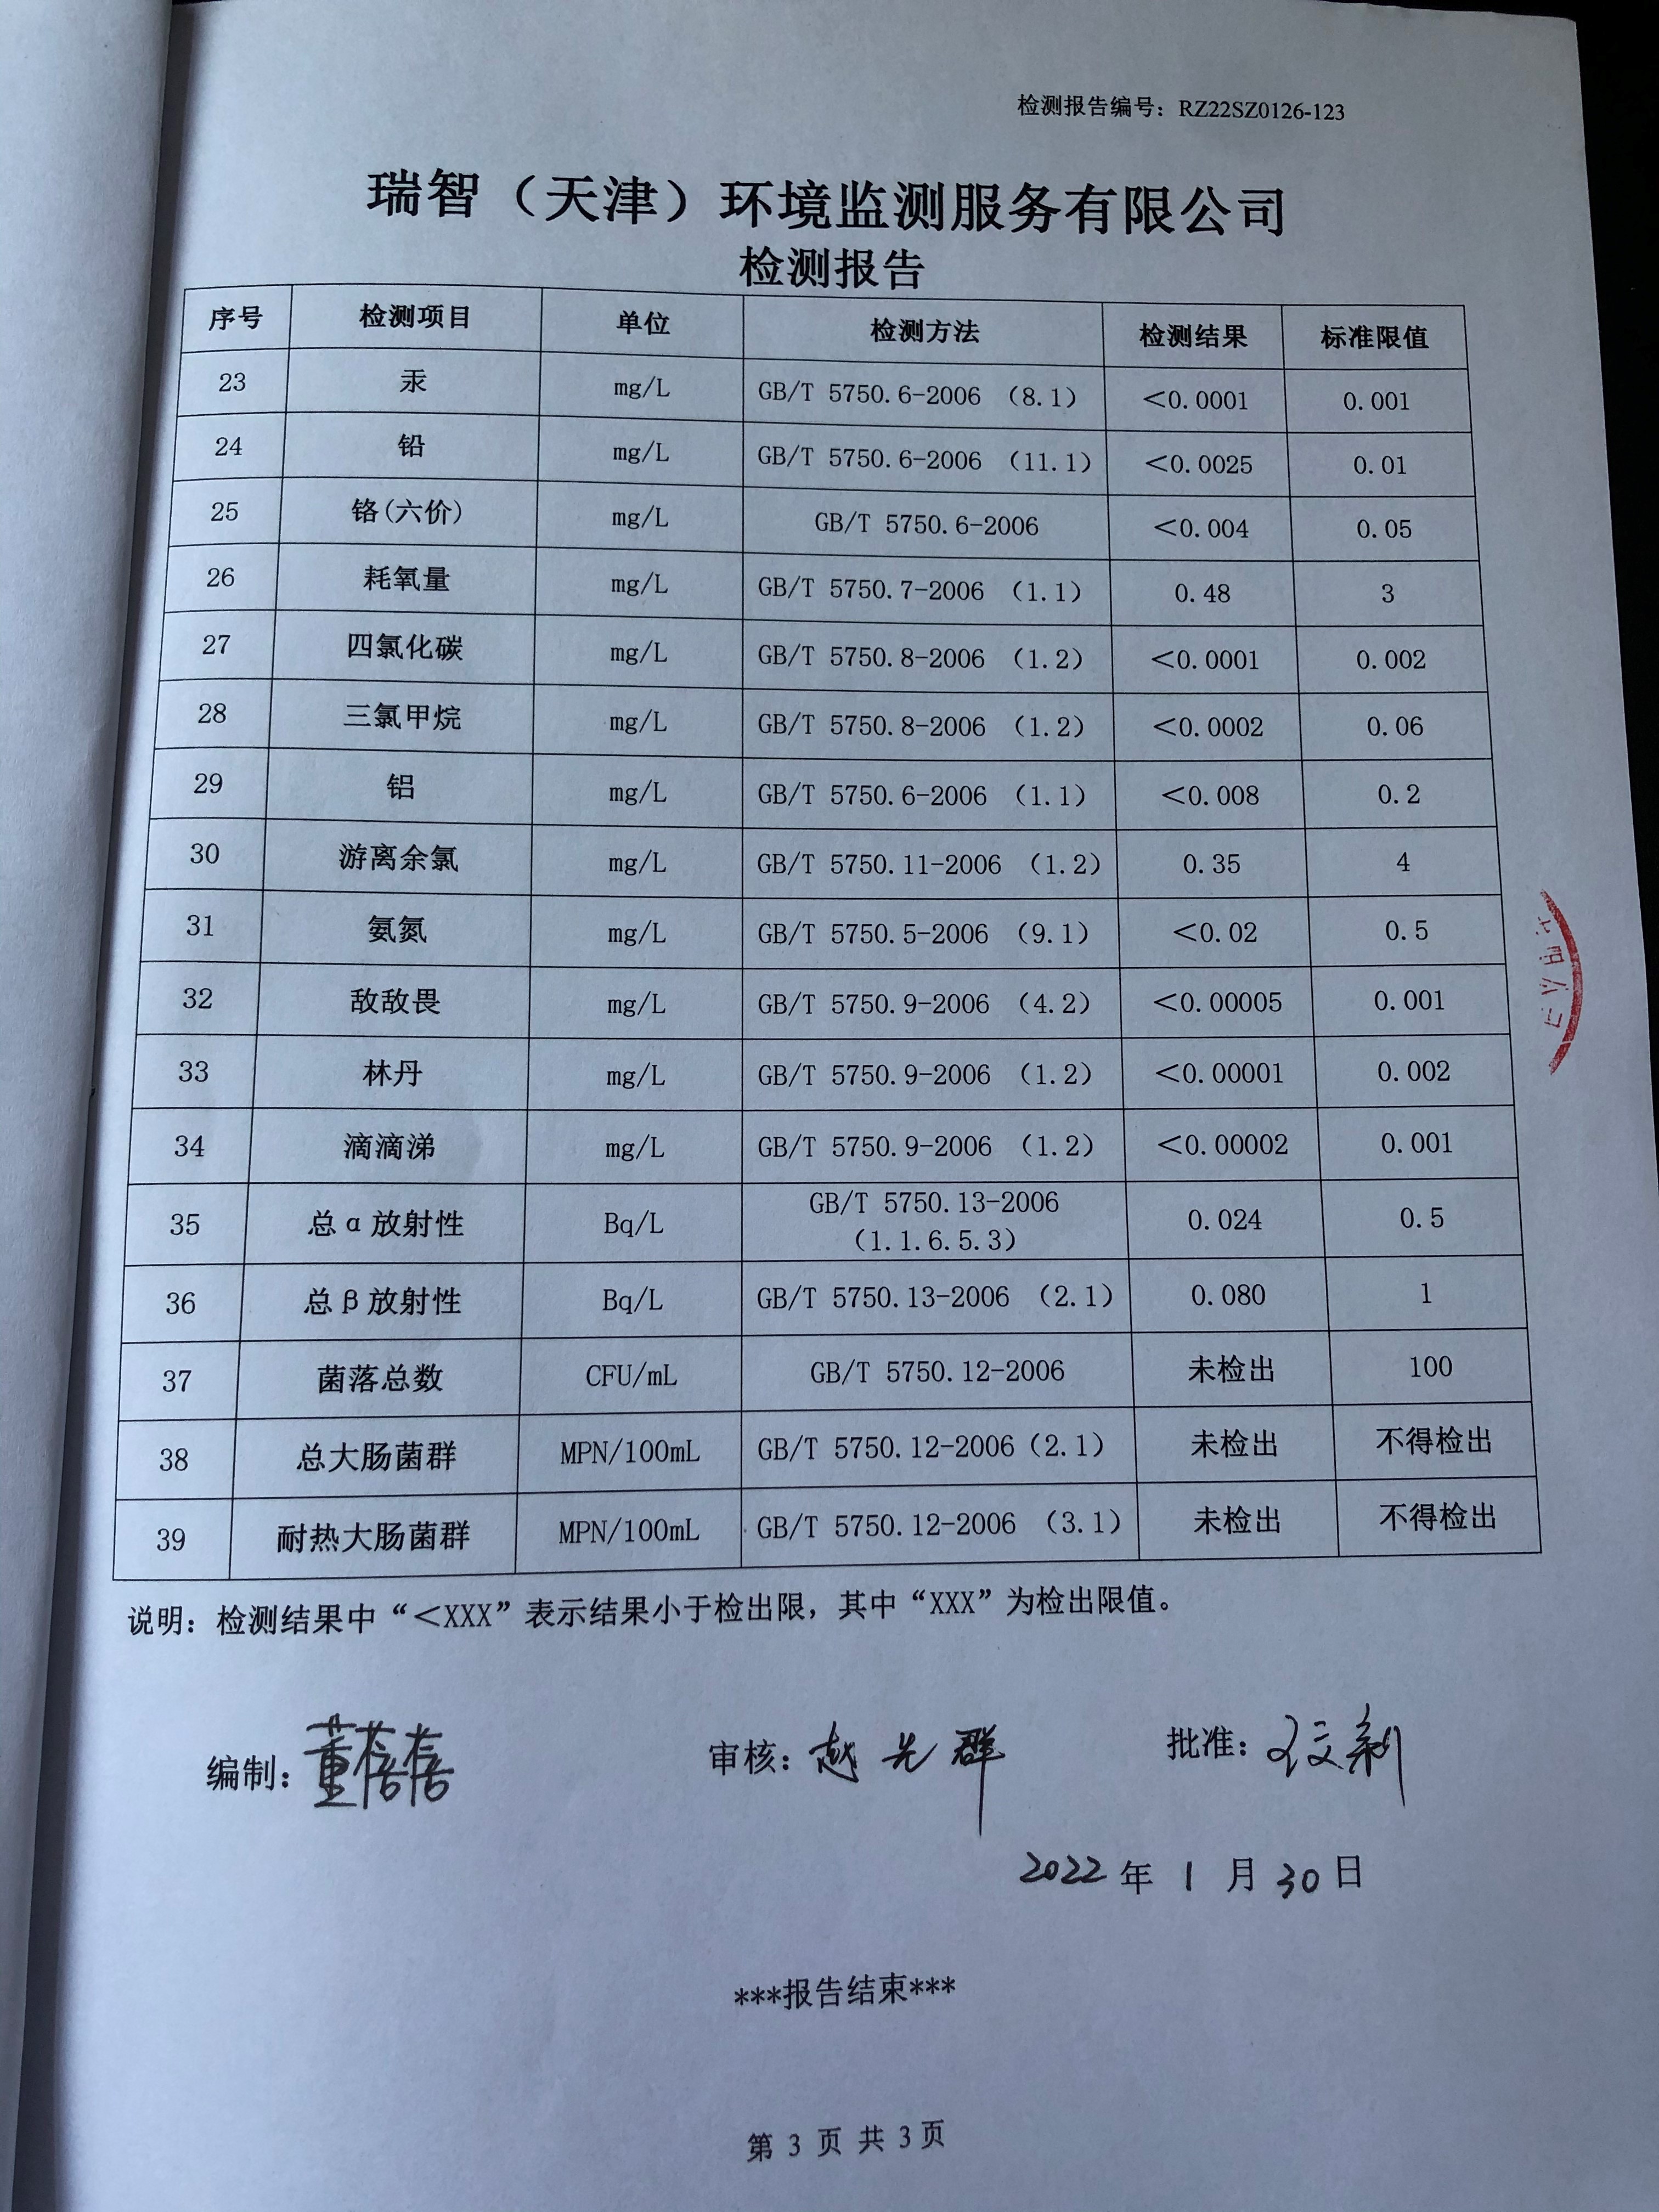 检测报告编号：RZ22SZ0126-123
瑞智（天津）环境监测服务有限公司
检测报告
序号 检测项目 单位 检测方法 检测结果 标准限值
23 汞 mg/L GB/T 5750.6-2006 （8.1） ＜0.0001 0.001
24 铅 mg/L GB/T 5750.6-2006 （11.1） ＜0.0025 0.01
25 铬(六价) mg/L GB/T 5750.6-2006 ＜0.004 0.05
26 耗氧量 mg/L GB/T 5750.7-2006 （1.1） 0.48 3
27 四氯化碳 mg/L GB/T 5750.8-2006 （1.2） ＜0.0001 0.002
28 三氯甲烷 mg/L GB/T 5750.8-2006 （1.2） ＜0.0002 0.06
29 铝 mg/L GB/T 5750.6-2006 （1.1） ＜0.008 0.2
30 游离余氯 mg/L GB/T 5750.11-2006 （1.2） 0.35 4
31 氨氮 mg/L GB/T 5750.5-2006 （9.1） ＜0.02 0.5
32 敌敌畏 mg/L GB/T 5750.9-2006 （4.2） ＜0.00005 0.001
33 林丹 mg/L GB/T 5750.9-2006 （1.2） ＜0.00001 0.002
34 滴滴涕 mg/L GB/T 5750.9-2006 （1.2） ＜0.00002 0.001
35 总α放射性 Bq/L GB/T 5750.13-2006 （1.1.6.5.3） 0.024 0.5
36 总β放射性 Bq/L GB/T 5750.13-2006 （2.1） 0.080 1
37 菌落总数 CFU/mL GB/T 5750.12-2006 未检出 100
38 总大肠菌群 MPN/100mL GB/T 5750.12-2006（2.1） 未检出 不得检出
39 耐热大肠菌群 MPN/100mL GB/T 5750.12-2006 （3.1） 未检出 不得检出
说明：检测结果中“＜XXX”表示结果小于检出限，其中“XXX”为检出限值。
编制： 审核：赵先群 批准：
2022年1月30日
***报告结束***
第 3 页 共 3 页